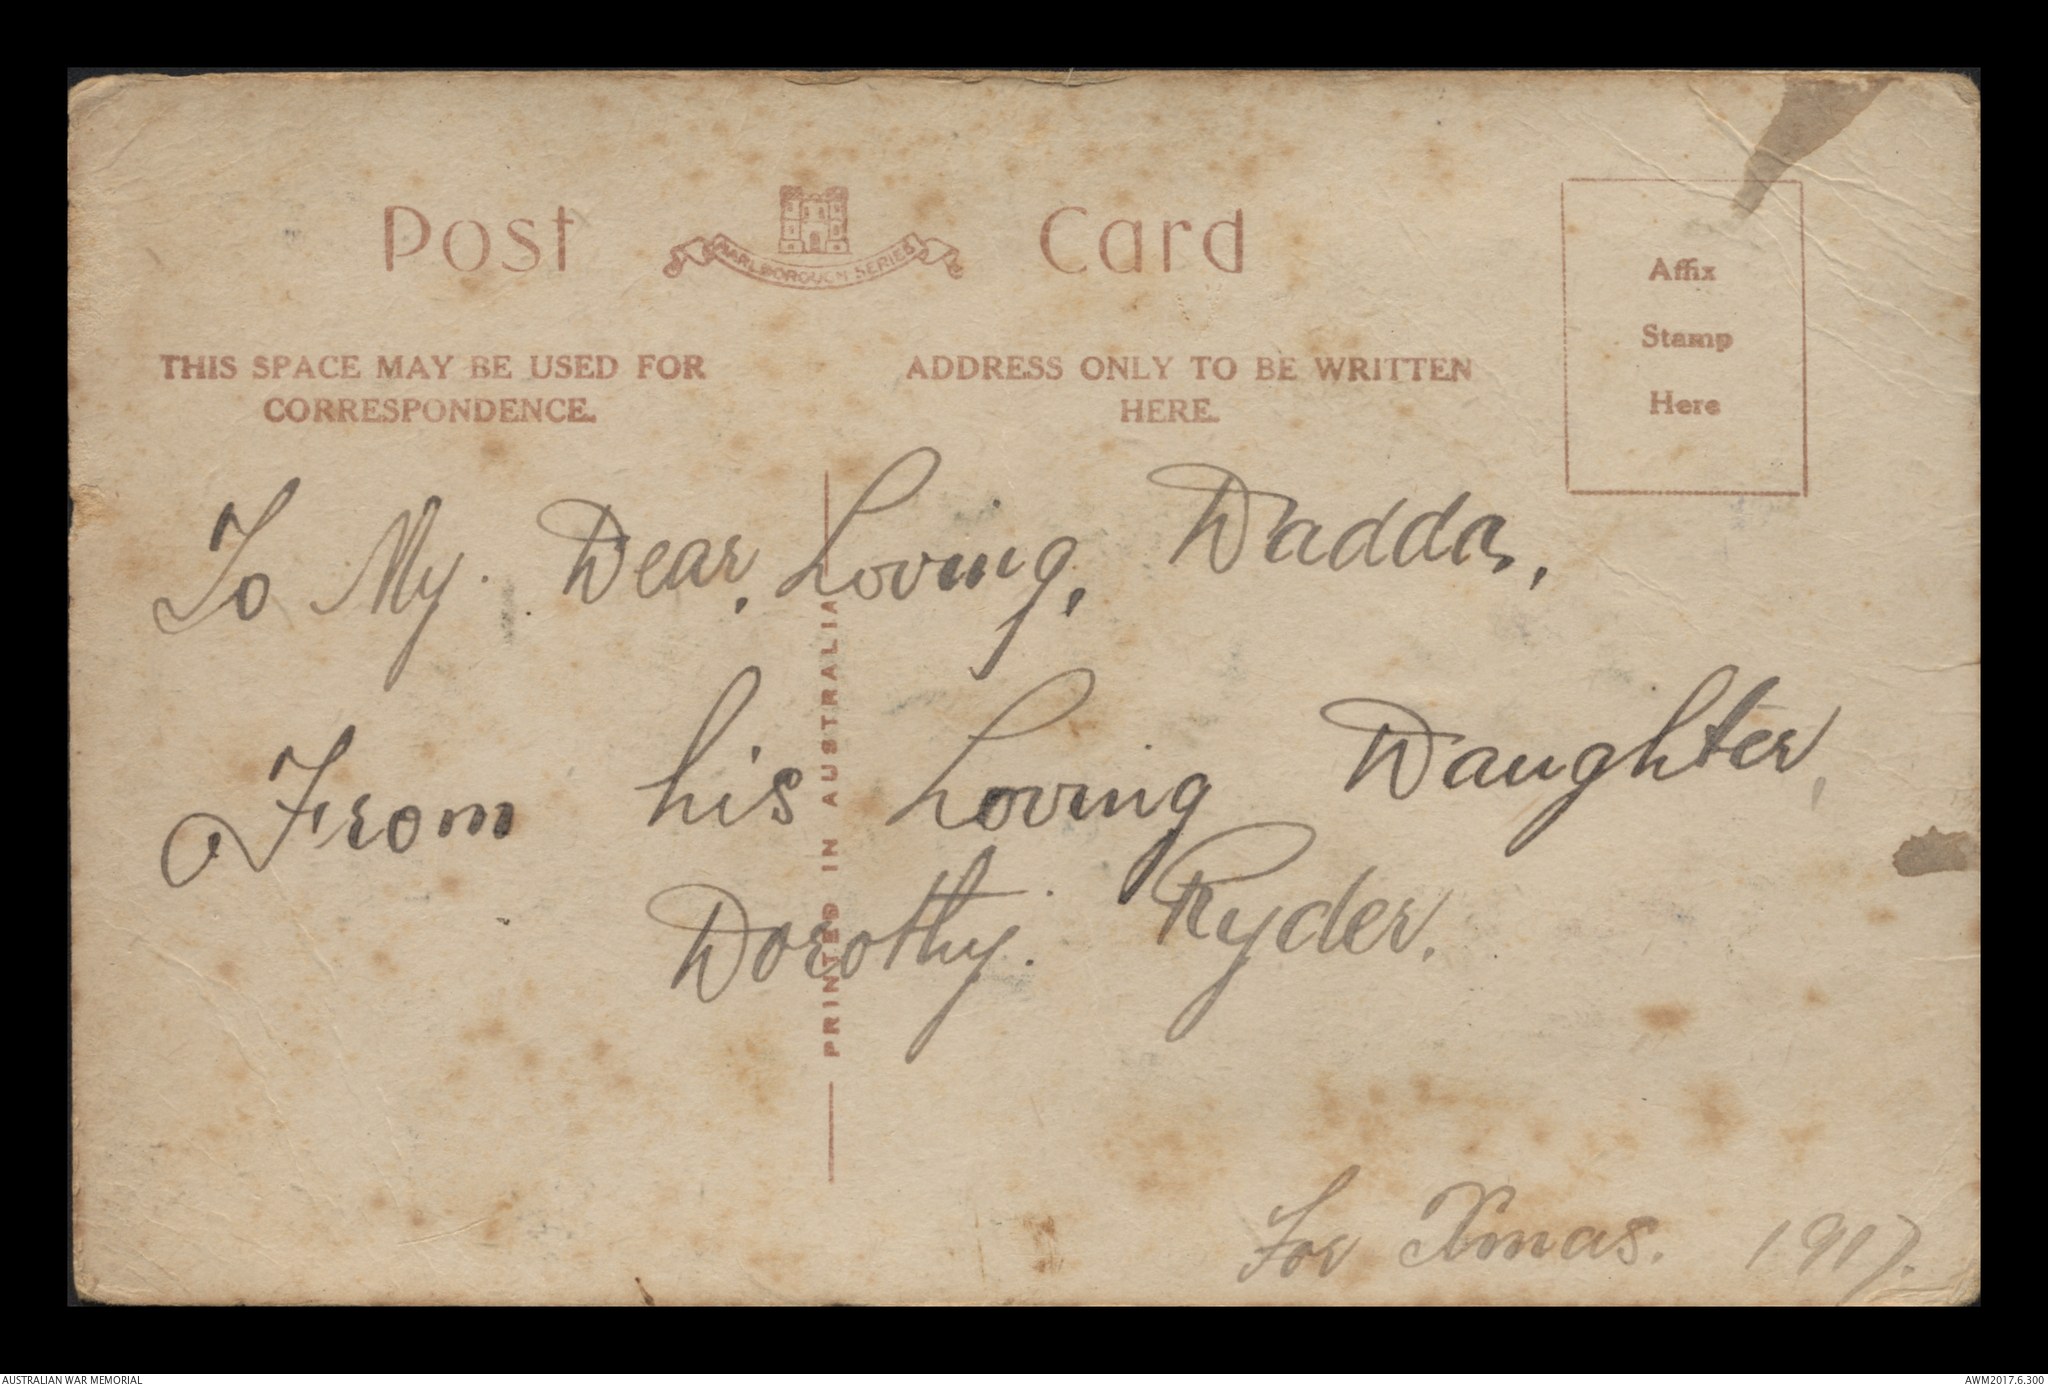 Post Card
MARLBOROUGH SERIES
Affix
Stamp
Here
THIS SPACE MAY BE USED FOR
CORRESPONDENCE.
ADDRESS ONLY TO BE WRITTEN
HERE.
To My. Dear, Loving, Dadda,
From his Loving Daughter,
Dorothy. Ryder.
For Xmas. 1917.
PRINTED IN AUSTRALIA
AUSTRALIAN WAR MEMORIAL
AWM2017.6.300